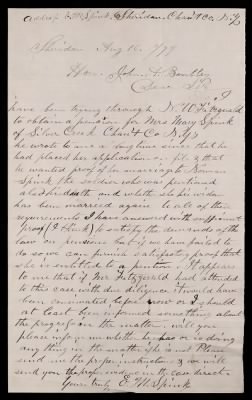 Address E M Spink, Sheridan, Chaut Co. N.Y.
Sheridan Aug 16, 1879
Hon. John A. Bentley
Dear Sir
I have been trying through N. W. Fitzgerald
to obtain a pension for Mrs Mary Spink
of Silver Creek Chaut Co N.Y.
he wrote to me a long time since that he
had placed her application on file & that
he wanted proof of her marriage to
Spink the soldier who was pentioned
also his death and whether his widow
has been married again to all of these
requirements I have answered with sufficient
proof (I think) to satisfy the demands of the
law on pensions but if we have failed to
do so we can furnish satisfactory proof that
she is entitled to a pention It appears
to me that if Mr Fitzgerald had attended
to this case with due diligence it would have
been consumated before now or I should
at least been informed something about
the progress in the matter. will you
please inform me whether he has or is doing
any thing in the matter if he is not Please
send me the proper instructions & we will
send you the proof and evidence in the case direct.
Yours truly E. M. Spink